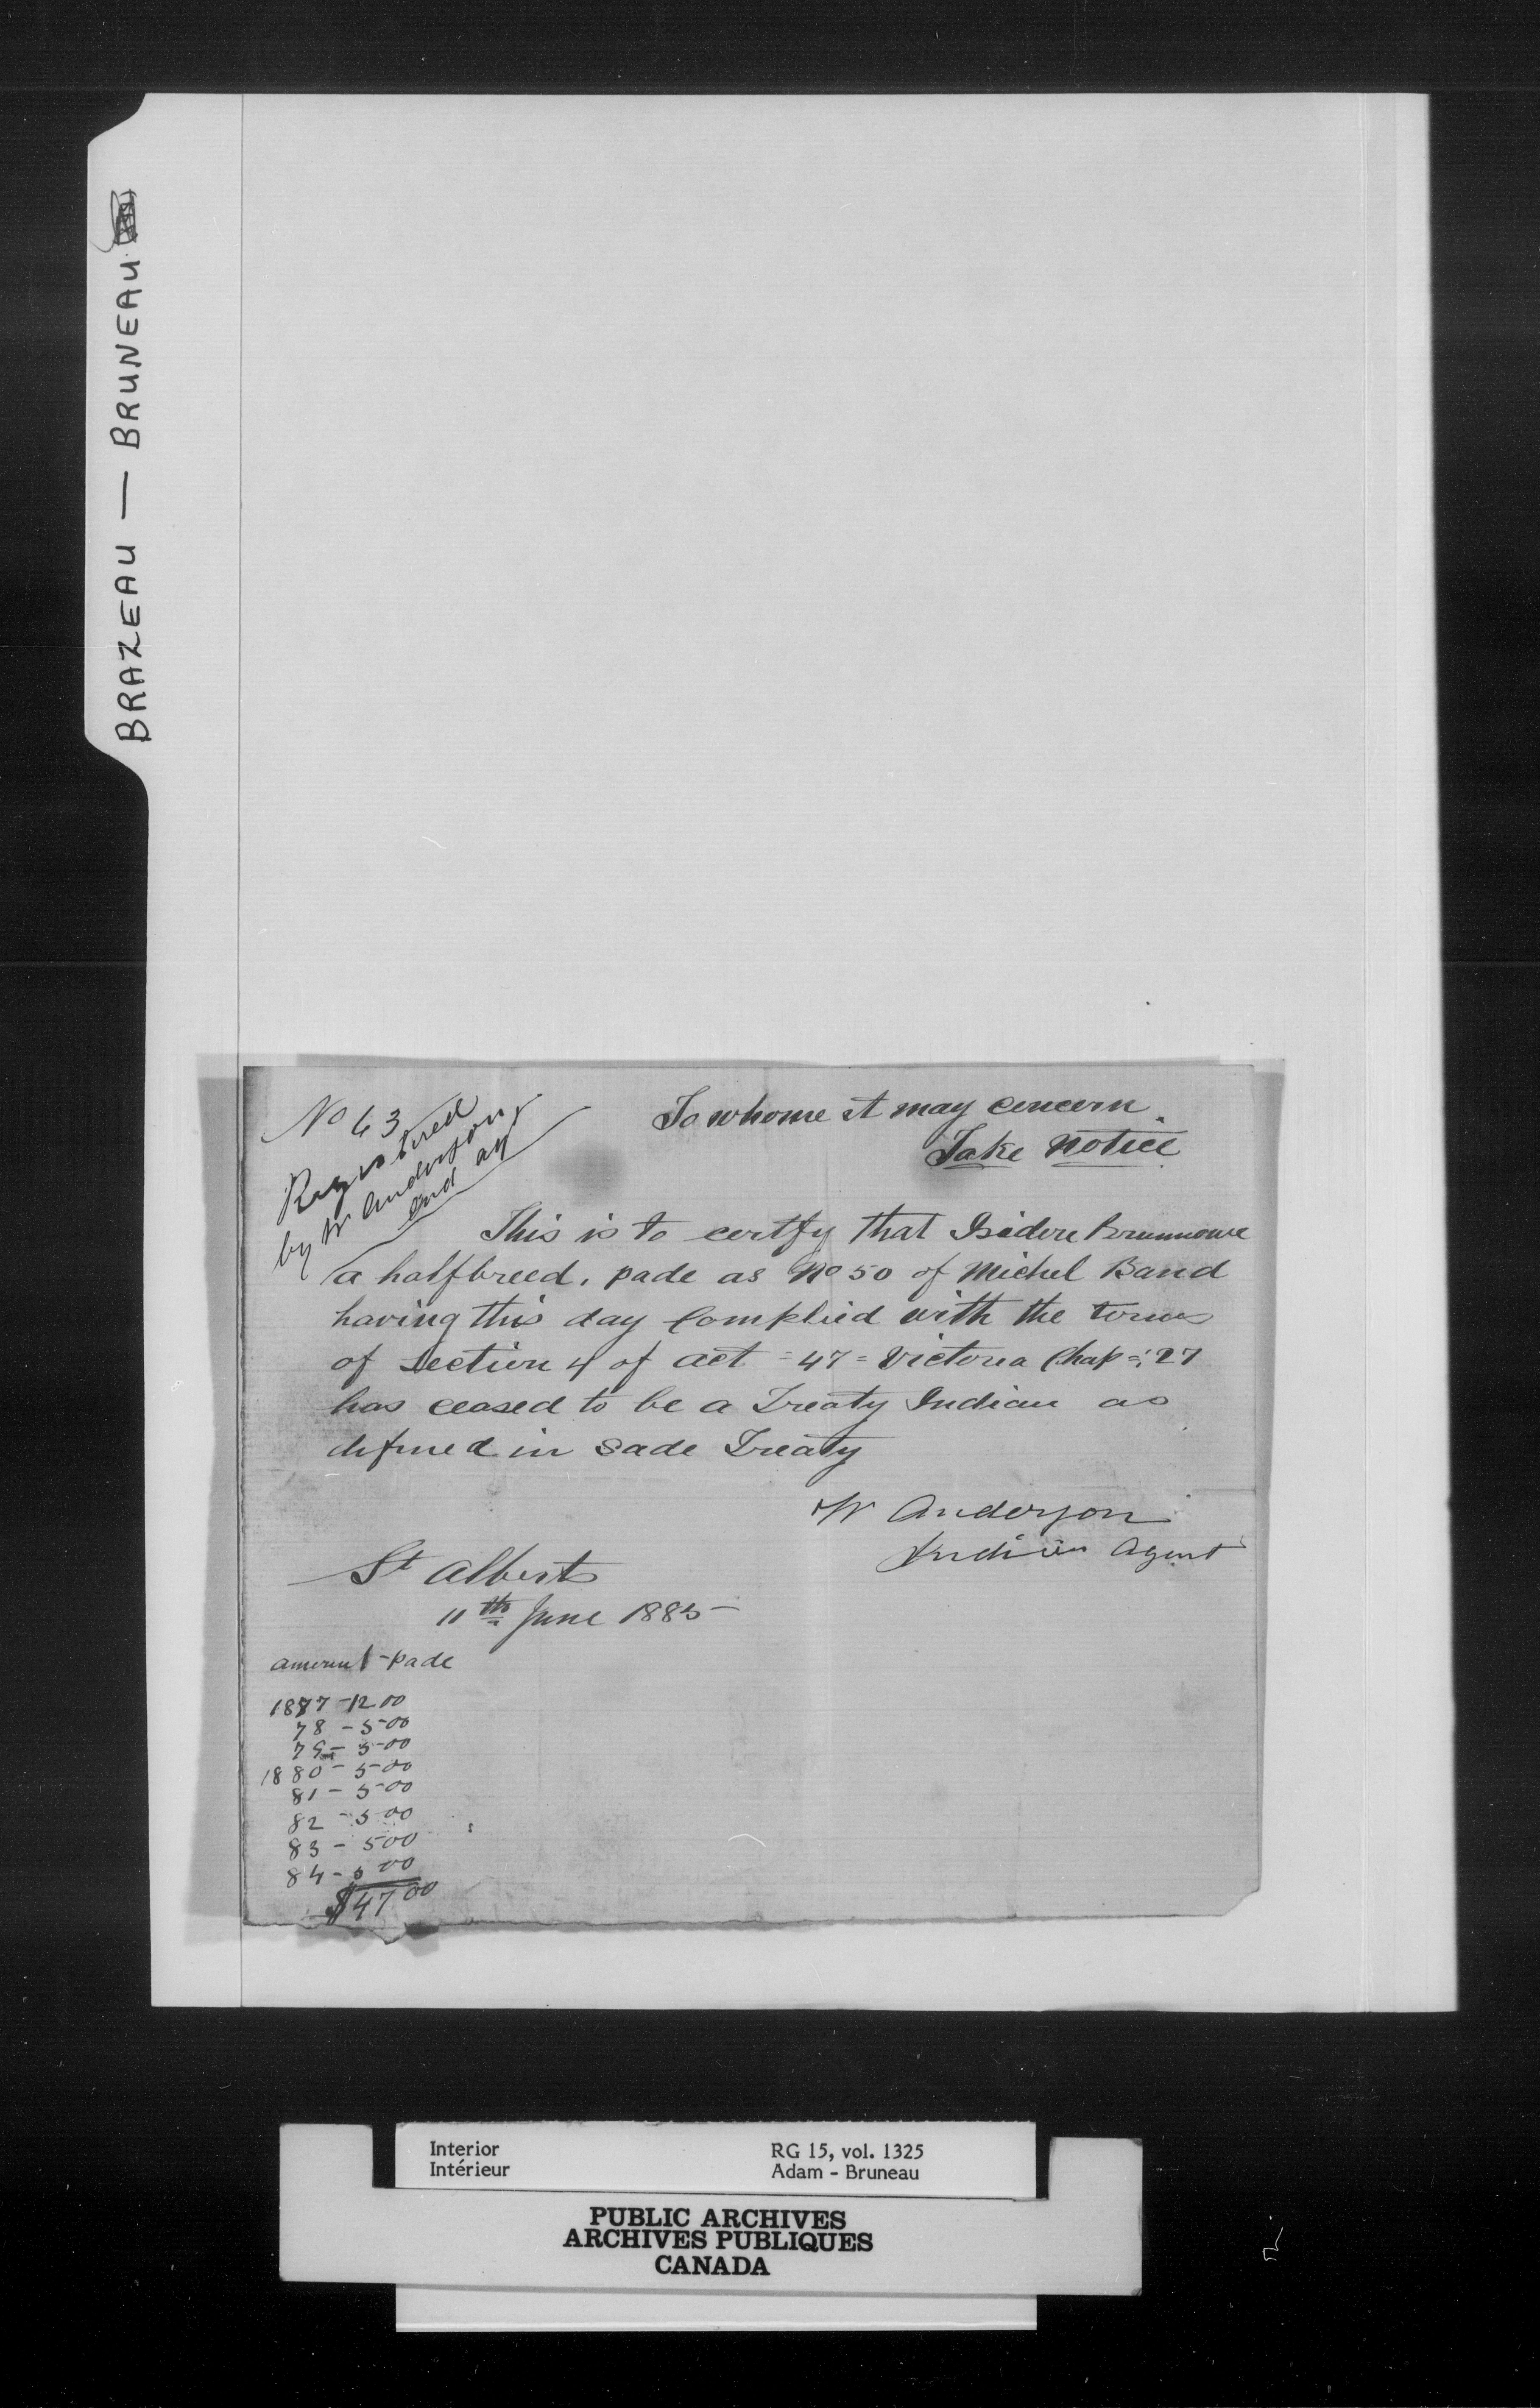 BRAZEAU — BRUNEAU
No 63
Registered
by W Anderson
Ind ag
To whome it may concern.
Take notice
This is to certfy that Isidore Brunnowe
a halfbreed. pade as No 50 of Michel Band
having this day Complied with the terms
of Section 4 of act = 47 = Victoria Chap = 27
has ceased to be a Treaty Indian as
defined in sade Treaty
W Anderson
Indian Agent
St Albert
11th June 1885
amount - pade
1877 - 12 00
78 - 5-00
79 - 5-00
1880 - 5-00
81 - 5-00
82 - 5 00
83 - 500
84 - 5 00
$47 00
Interior RG 15, vol. 1325
Intérieur Adam - Bruneau
PUBLIC ARCHIVES
ARCHIVES PUBLIQUES
CANADA